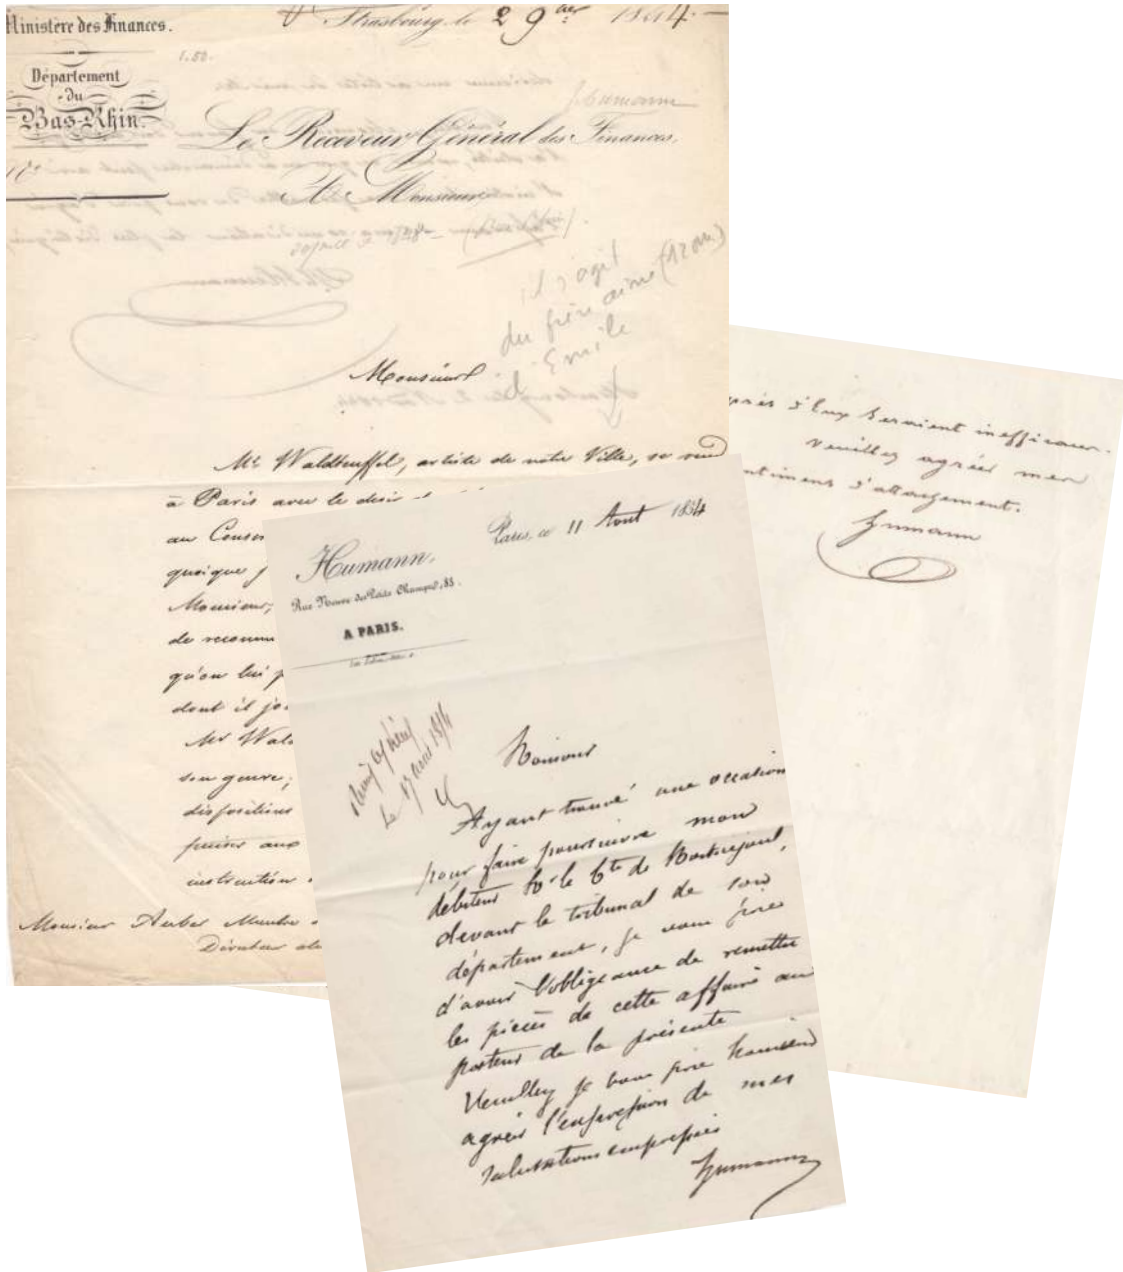 Ministère des Finances.
Département
du
Bas-Rhin.
Strasbourg, le 29 1844.
1.50.
Humann
Le Receveur Général des Finances,
A Monsieur
il s'agit
du frère aîné
Emile
Monsieur
Mr. Waldteuffel, artiste de notre Ville, se rend
à Paris avec le desir
au Conser
quoique
Monsieur,
de recomm
qu'on lui
dont il jo
Mr Wal
son genre,
dispositions
puiser aux
instruction
Monsieur Auber Membre
Directeur
près d'eux seraient inefficaces.
Veuillez agréer mes
ntimens d'attachement.
Humann
Humann,
Rue Neuve des Petits Champs, 83.
A PARIS.
Paris, ce 11 Aout 1854
le 17 août 1854
Monsieur
Ayant trouvé une occasion
pour faire poursuivre mon
débiteur Mr le Cte de
devant le tribunal de son
département, je vous prie
d'avoir l'obligeance de remettre
les pièces de cette affaire au
porteur de la présente
Veuillez je vous prie Monsieur
agréer l'expression de mes
salutations empressées
Humann